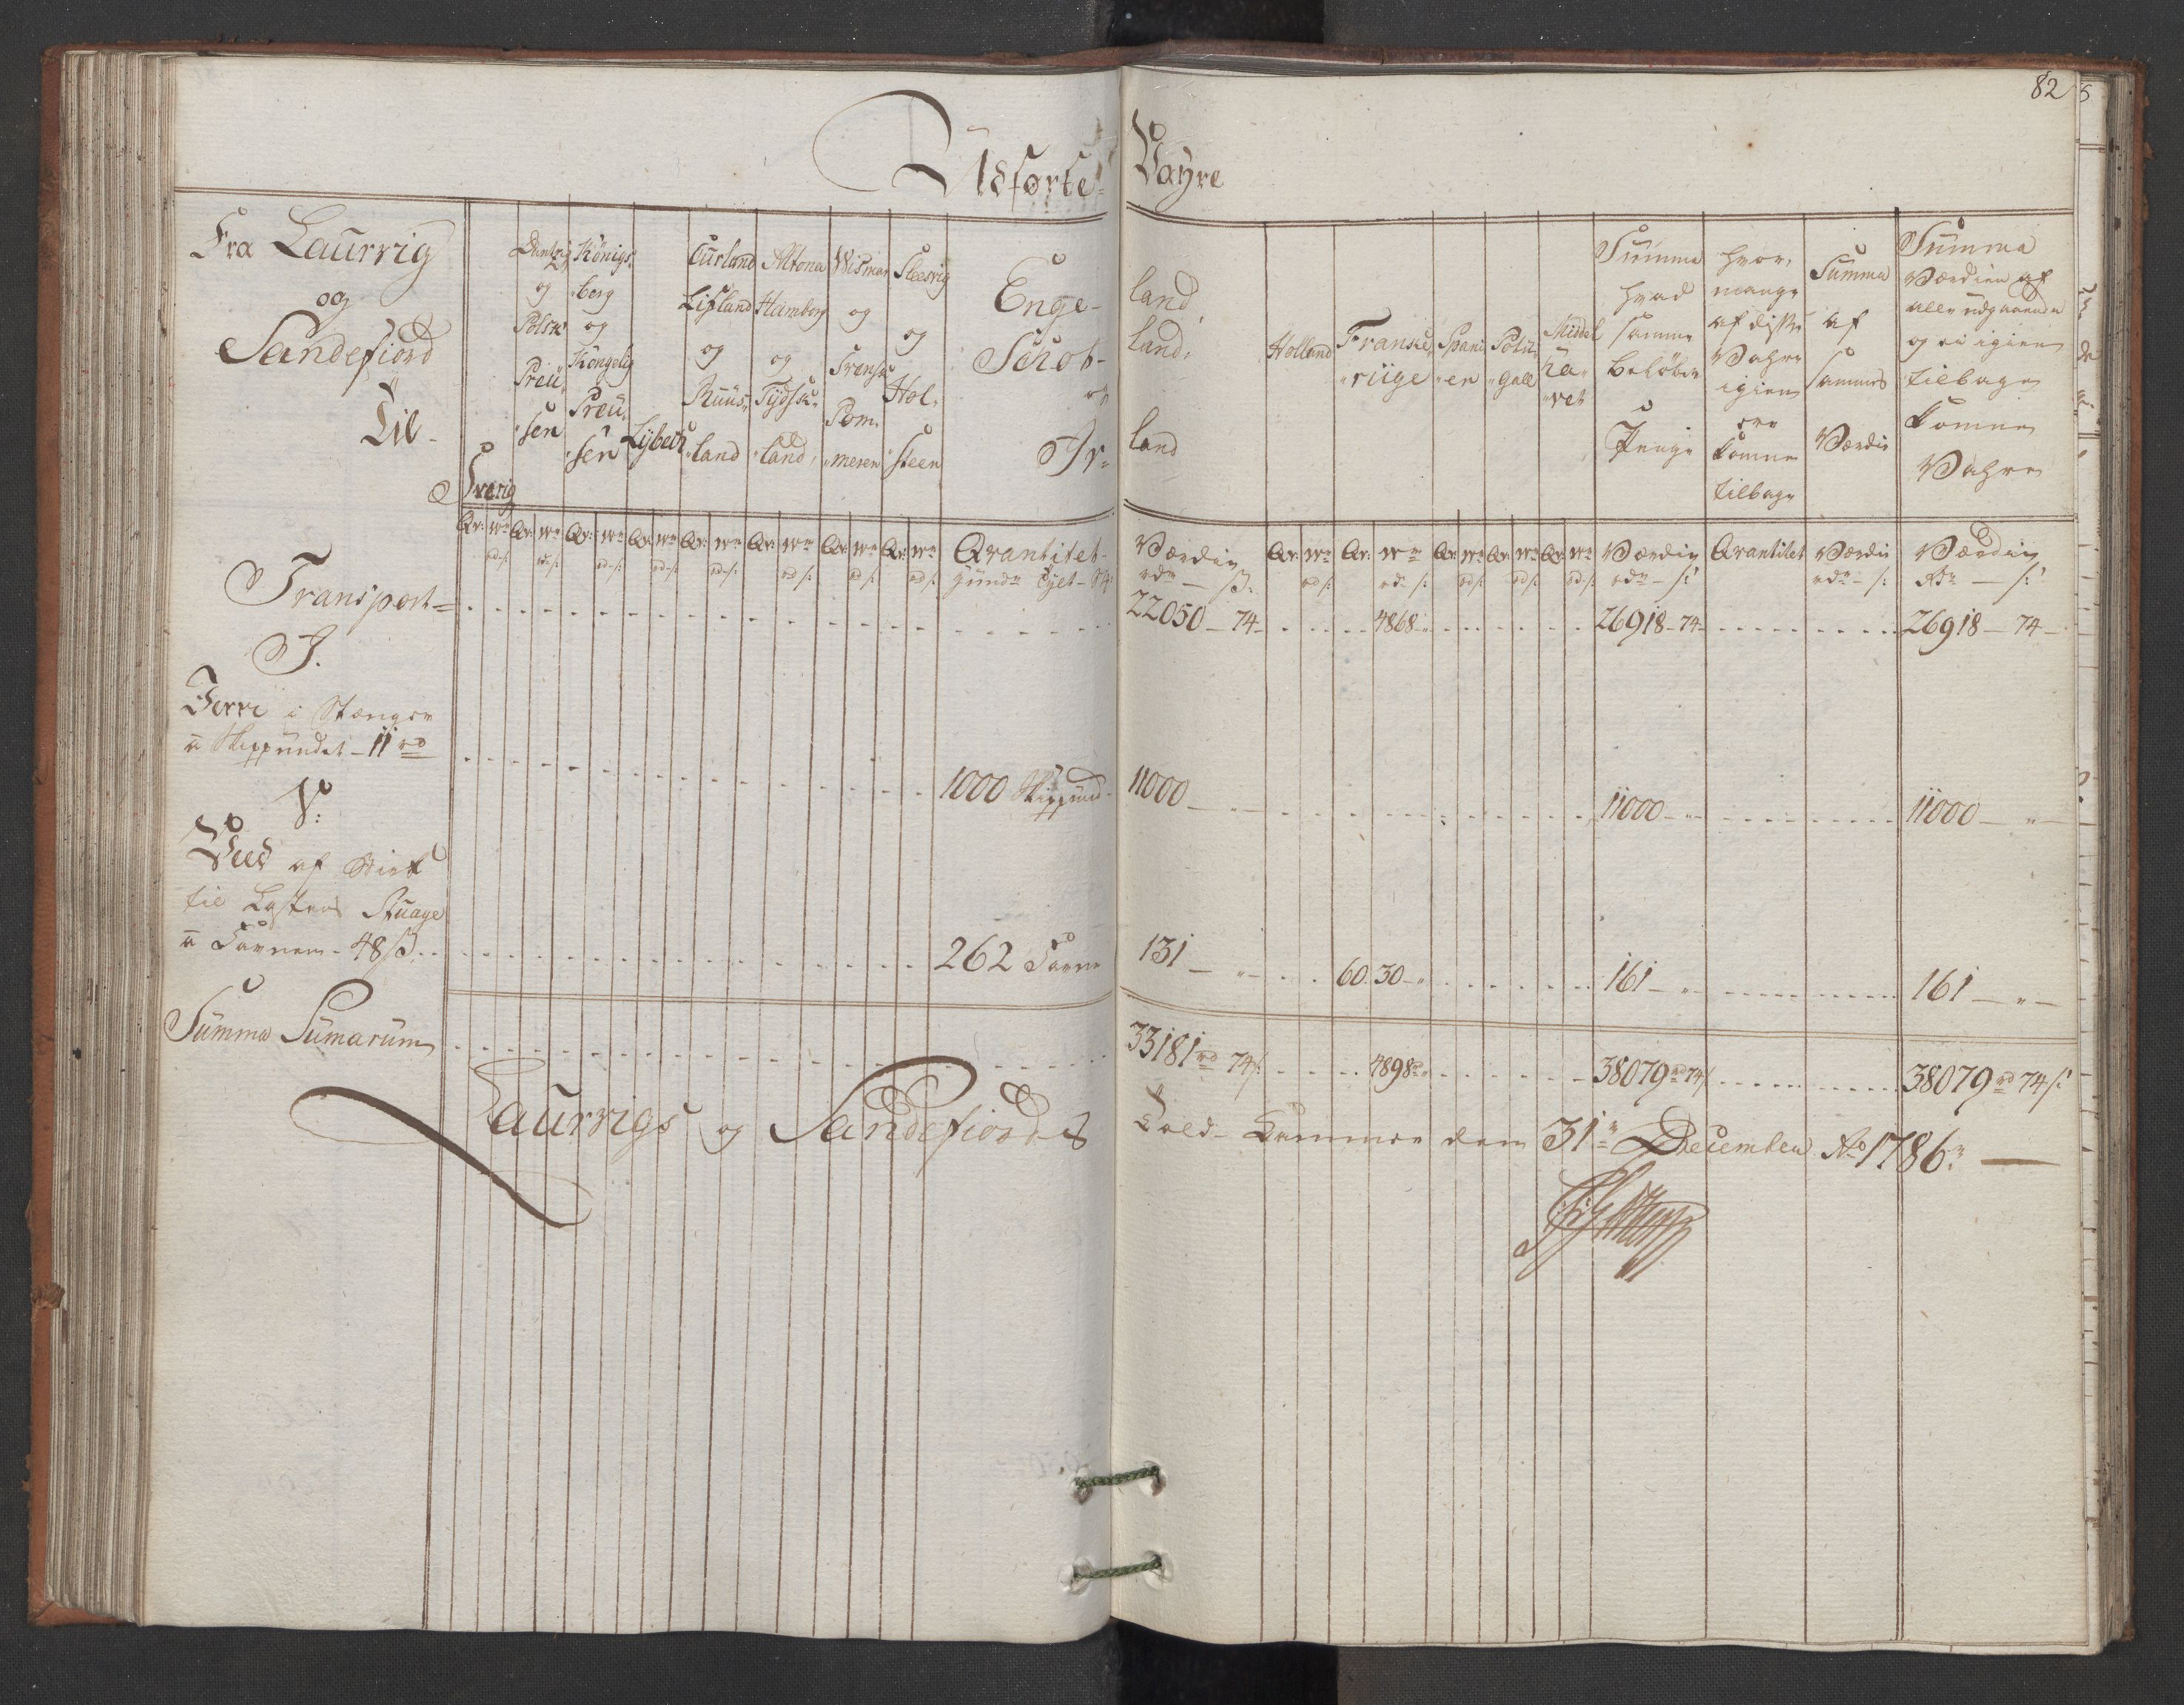 82
Udførte Vahre
Fra Laurvig
og
Sandefiord
Til
Sverig
Dantzig
og
Polsk
Preu-
sen
Königs-
berg
og
Kongelig
Preu-
sen
Lybech
Curland
Lifland
og
Ruus-
land
Altona
Hamborg
og
Tydsk-
land
Wismar
og
Svensk
Pom-
meren
Sleesvig
og
Hol-
steen
Enge- land,
Schot- land,
og
Ir- land
Holland
Franke-
riige
Spani-
en
Portu-
gall
Middel
ha-
vet
Summa
hvad
samme
beløber
Penge
Hvor
mange
af disse
Vahre
igien
ere
komne
tilbage
Summa
af
sammes
Værdie
Summa
Værdien af
alle udgaaende
og ei igien
tilbage
komne
Vahre
Qv: Wr Qv: Wr Qv: Wr Qv: Wr Qv: Wr Qv: Wr Qv: Wr Qv: Wr Qvantitet Værdie Qv: Wr Qv: Wr Qv: Wr Qv: Wr Qv: Wr Værdie Qvantitet Værdie Værdie
Transport 22050 - 74 - 4868 - " 26918 - 74 - 26918 - 74 -
J.
Jern i Stænger
a Skippundet - 11 rd 1000 Skippund 11000 - " - 11000 - " - 11000 - " -
V:
Ved af Birk
til Lastens Stuage
a Favnen - 48 ß 262 Favne 131 - " - 60. 30 - " 161 - " - 161 - " -
Summa Sumarum 33181 rd 74 ß: 4898 rd " 38079 rd 74 ß 38079 rd 74 ß:
Laurvigs og Sandefiords Told-Kammer den 31te December Ao 1786.